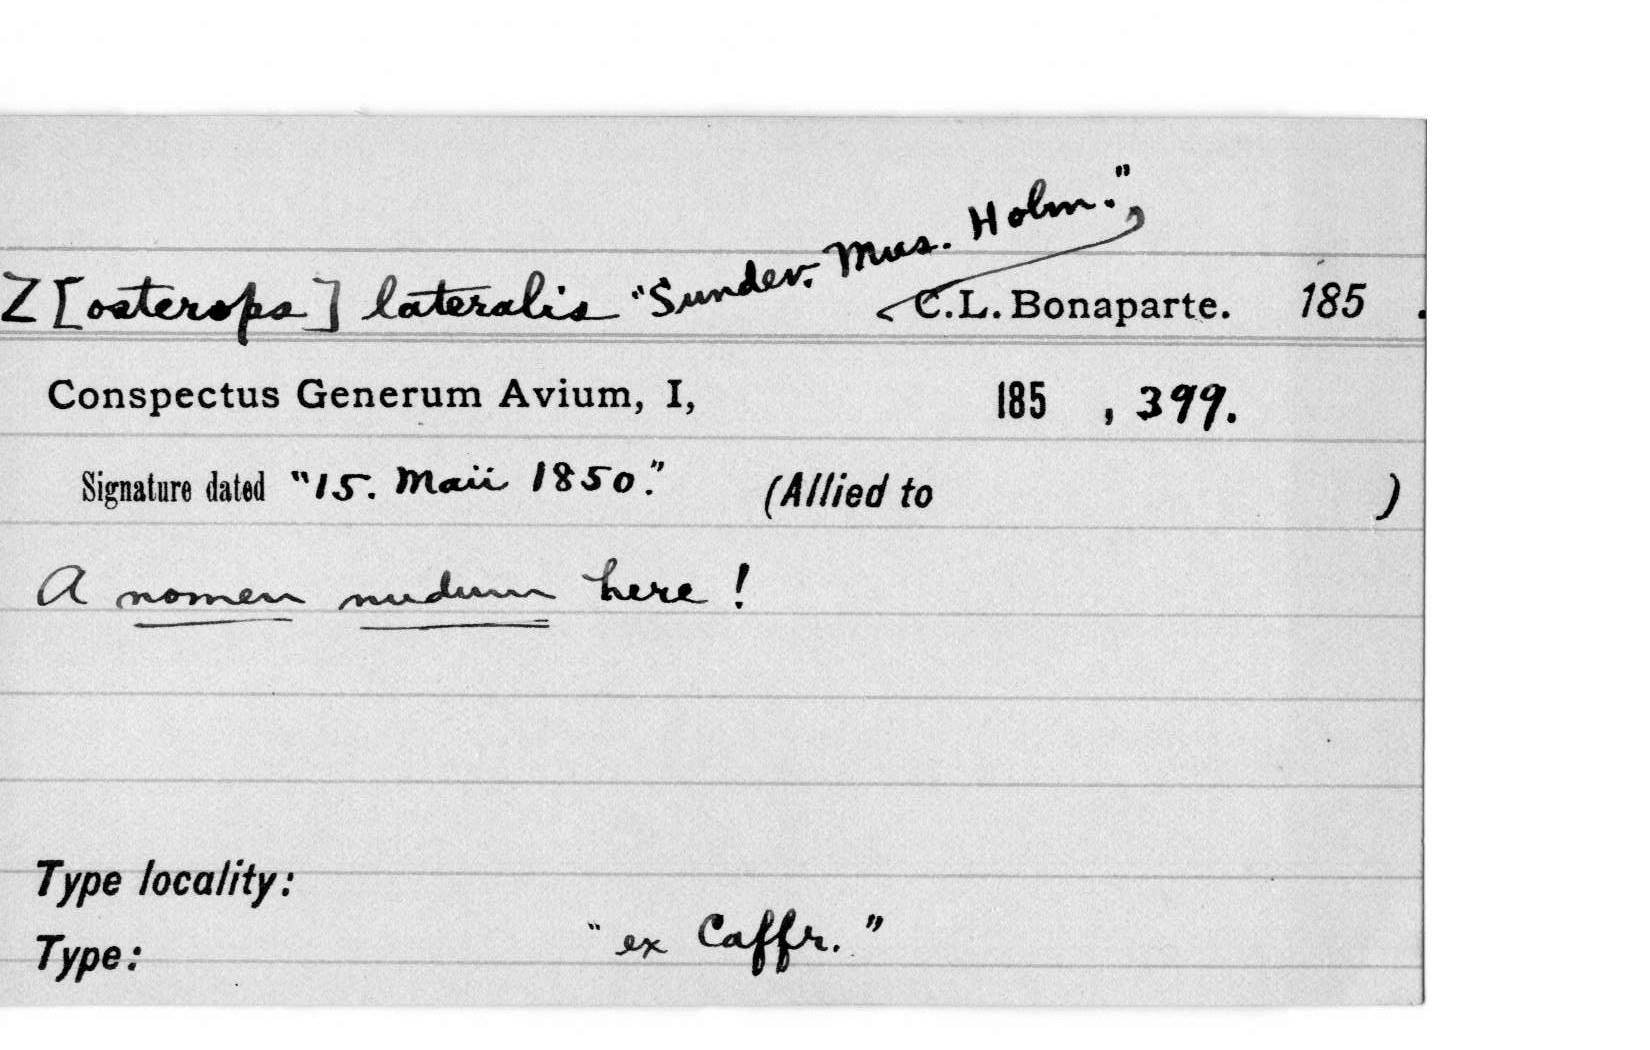 Z[osterops] lateralis "Sundev. Mus. Holm.", C.L. Bonaparte. 185 .
Conspectus Generum Avium, I, 185 , 399.
Signature dated "15. Maii 1850." (Allied to )
A nomen nudum here!
Type locality:
Type: "ex Caffr."